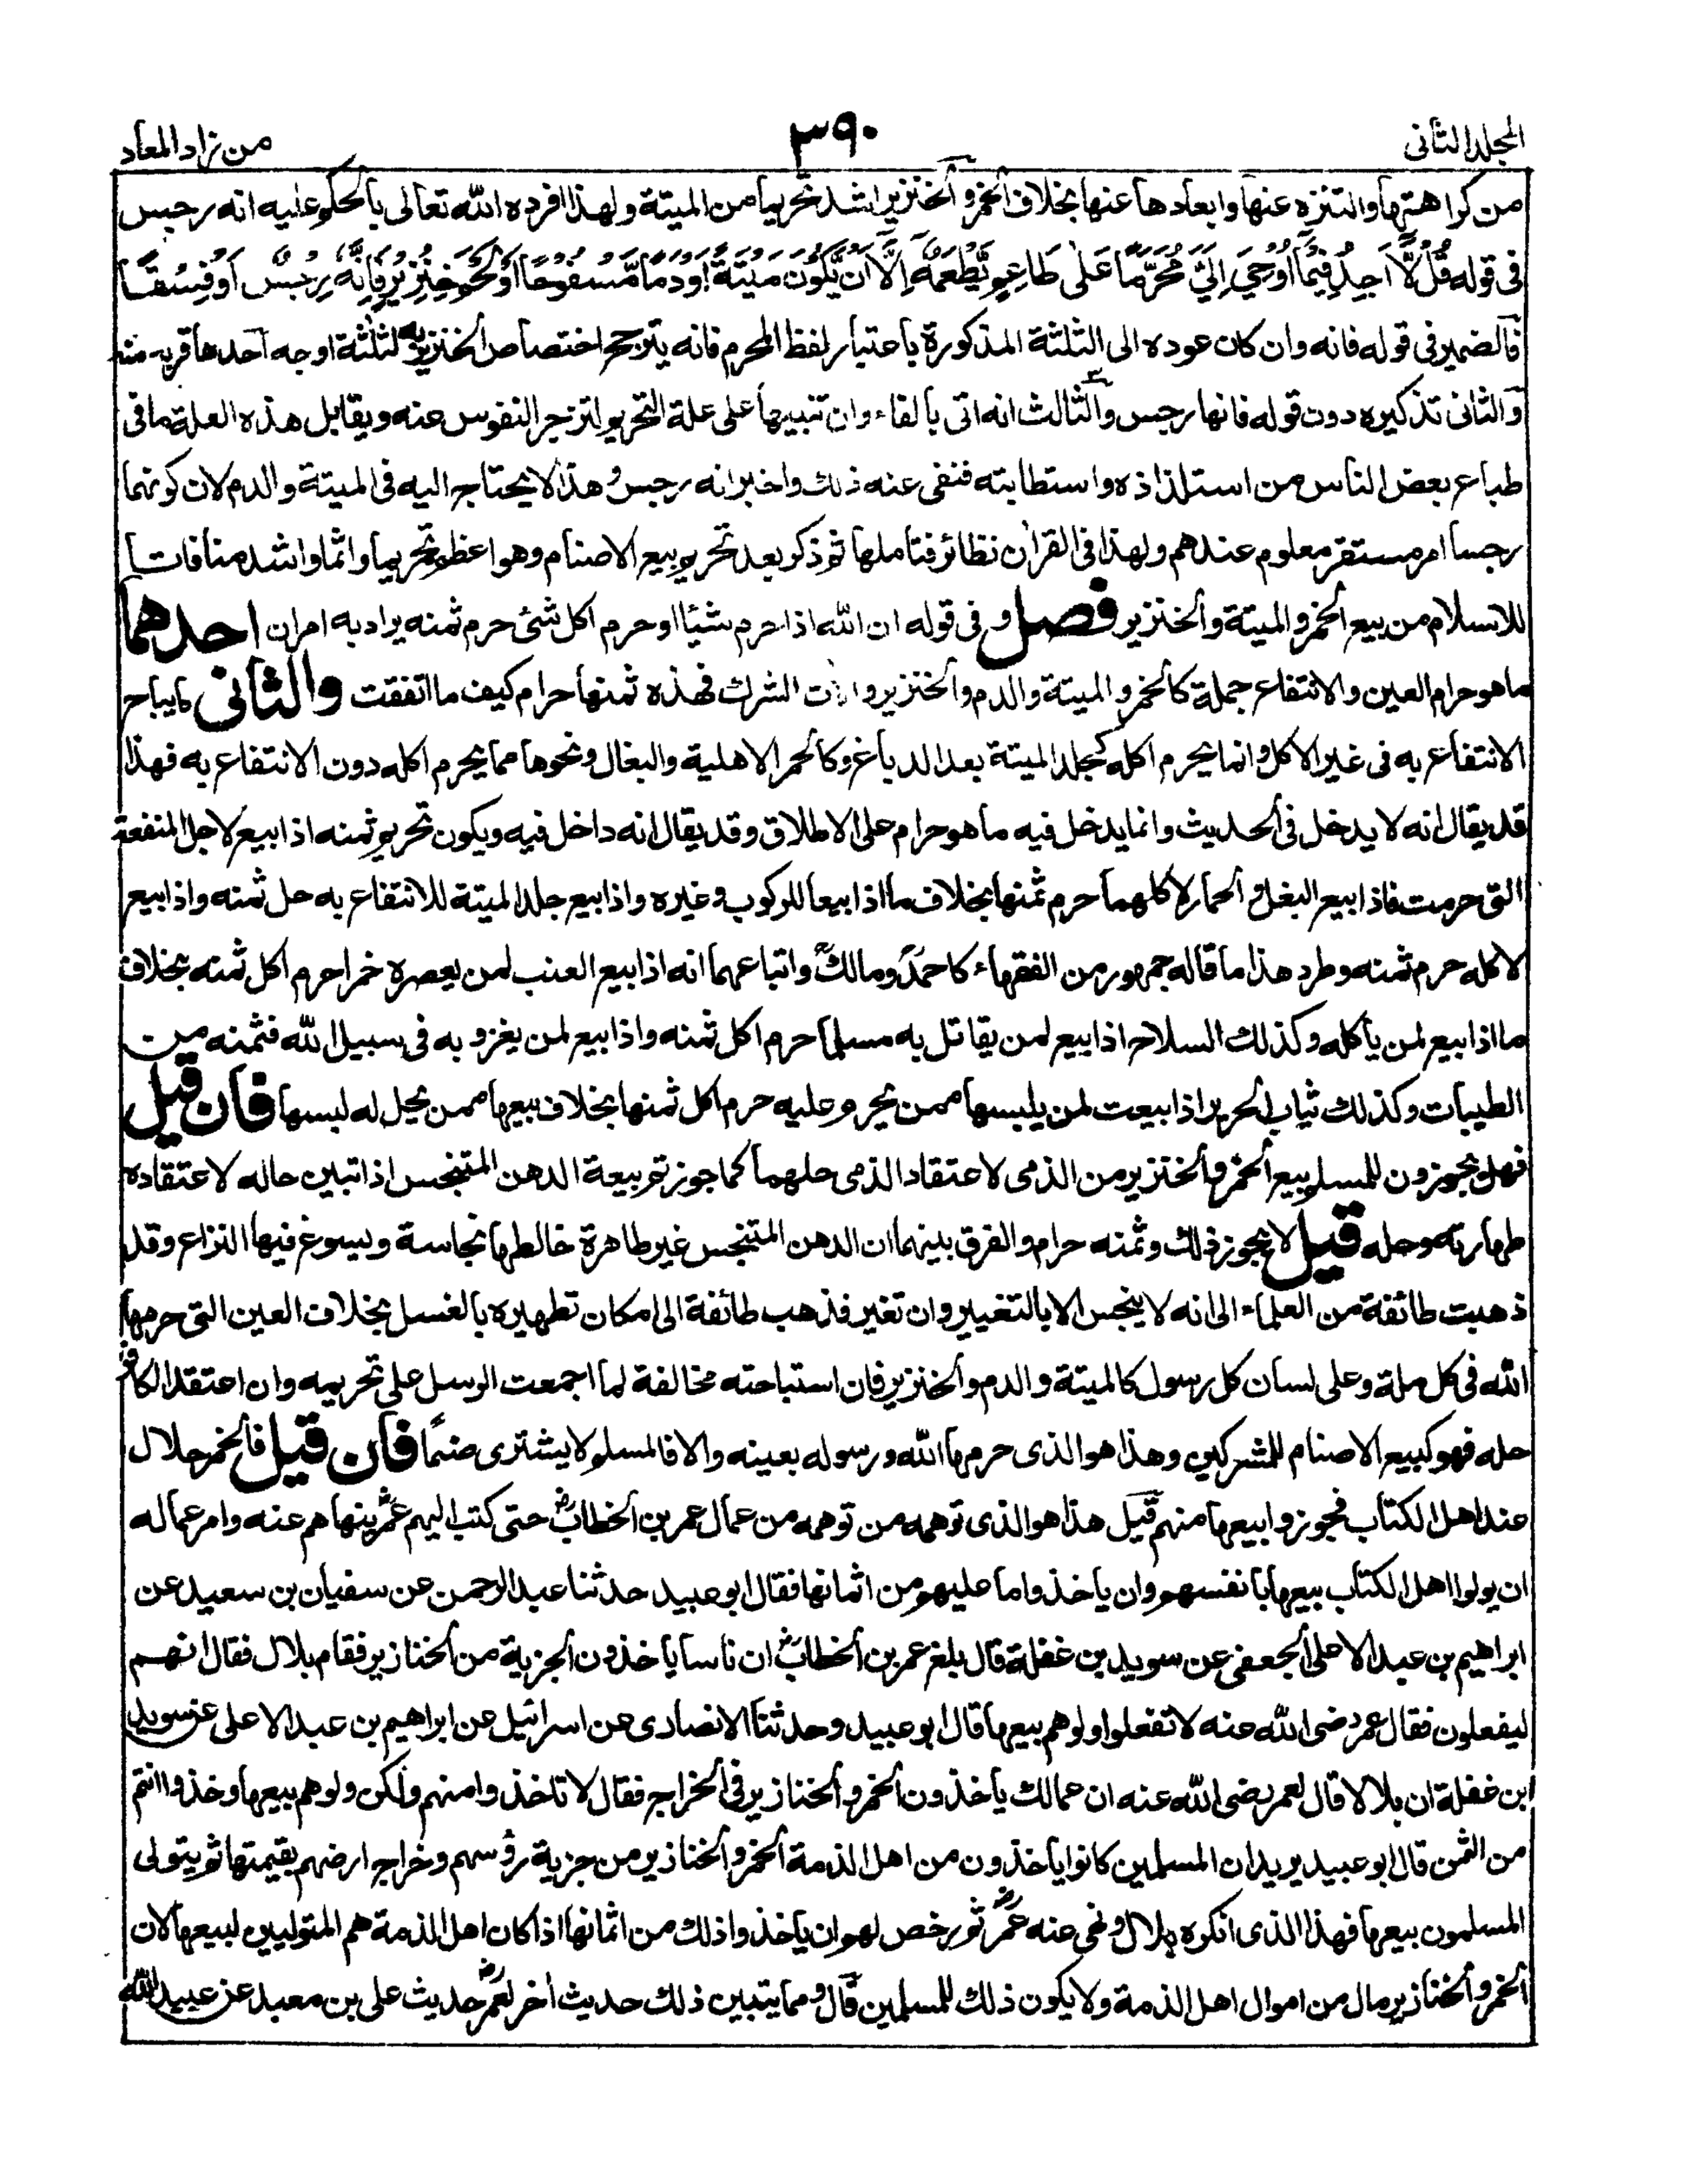 المجلد الثانى
٣٩٠
من زاد المعاد
من كراهتها والتنزه عنها وابعادها عنها بخلاف الخمر والخنزير اشد تحريما من الميتة ولهذا افرده الله تعالى بالحكم عليه انه رجس
فى قوله قُلْ لَّا اَجِدُ فِيْمَا اُوْحِيَ اِلَيَّ مُحَرَّمًا عَلٰى طَاعِمٍ يَّطْعَمُهٗ اِلَّا اَنْ يَّكُوْنَ مَيْتَةً اَوْ دَمًا مَّسْفُوْحًا اَوْ لَحْمَ خِنْزِيْرٍ فَاِنَّهٗ رِجْسٌ اَوْ فِسْقًا
فالضمير فى قوله فانه وان كان عوده الى الثلثة المذكورة باعتبار لفظ المحرم فانه يترجح اختصاص الخنزير به لثلثة اوجه احدها قربه منه
والثانى تذكيره دون قوله فانها رجس والثالث انه اتى بالفاء وان تنبيها على علة التحريم لتزجر النفوس عنه ويقابل هذه العلة ما فى
طباع بعض الناس من استلذاذه واستطابته فنفى عنه ذلك واخبر انه رجس وهذا لا يحتاج اليه فى الميتة والدم لان كونهما
رجسا امر مستقر معلوم عندهم ولهذا فى القران نظائر فتاملها ثم ذكر بعد تحريم بيع الاصنام وهو اعظم تحريما واثما واشد منافات
للاسلام من بيع الخمر والميتة والخنزير فصل و فى قوله ان الله اذا حرم شيئا او حرم اكل شئ حرم ثمنه يراد به امران احدهما
ما هو حرام العين والانتفاع جملة كالخمر والميتة والدم والخنزير و الشرك فهذه ثمنها حرام كيف ما اتفقت والثانى ما يباح
الانتفاع به فى غير الاكل وانما يحرم اكله كجلد الميتة بعد الدباغ وكالحمر الاهلية والبغال ونحوها مما يحرم اكله دون الانتفاع به فهذا
قد يقال انه لا يدخل فى الحديث وانما يدخل فيه ما هو حرام على الاطلاق وقد يقال انه داخل فيه ويكون تحريم ثمنه اذا بيع لاجل المنفعة
التى حرمت فاذا بيع البغل والحمار لاكلهما حرم ثمنها بخلاف ما اذا بيعا للركوب وغيره واذا بيع جلد الميتة للانتفاع به حل ثمنه واذا بيع
لاكله حرم ثمنه وطرد هذا ما قاله جمهور من الفقهاء كاحمد ومالك واتباعهما انه اذا بيع العنب لمن يعصره خمرا حرم اكل ثمنه بخلاف
ما اذا بيع لمن يأكله وكذلك السلاح اذا بيع لمن يقاتل به مسلما حرم اكل ثمنه واذا بيع لمن يغزو به فى سبيل الله فثمنه من
الطيبات وكذلك ثياب الحرير اذا بيعت لمن يلبسها ممن يحرم عليه حرم اكل ثمنها بخلاف بيعها ممن يحل له لبسها فان قيل
فهل تجوزون للمسلم بيع الخمر والخنزير من الذمى لاعتقاد الذمى حلهما كما جوزتم بيعة الدهن المتنجس اذا تبين حاله لاعتقاده
طهارته وحله قيل لا يجوز ذلك وثمنه حرام والفرق بينهما ان الدهن المتنجس غير طاهرة خالطها نجاسة ويسوغ فيها النزاع وقد
ذهبت طائفة من العلماء الى انه لا ينجس الا بالتغيير وان تغير فذهب طائفة الى امكان تطهيره بالغسل بخلاف العين التى حرمها
الله فى كل ملة وعلى لسان كل رسول كالميتة والدم والخنزير فان استباحته مخالفة لما اجمعت الرسل على تحريمه وان اعتقد الكافر
حله فهو كبيع الاصنام للمشركين وهذا هو الذى حرمها الله ورسوله بعينه والا فالمسلم لا يشترى صنما فان قيل فالخمر حلال
عند اهل الكتاب فجوزوا بيعها منهم قيل هذا هو الذى توهمه من توهمه من عمال عمر بن الخطابؓ حتى كتب اليهم عمرؓ ينهاهم عنه وامر عماله
ان يولوا اهل الكتاب بيعها بانفسهم وان ياخذوا ما عليهم من اثمانها فقال ابو عبيد حدثنا عبد الرحمن عن سفيان بن سعيد عن
ابراهيم بن عبد الاعلى الجعفى عن سويد بن غفلة قال بلغ عمر بن الخطابؓ ان ناسا ياخذون الجزية من الخنازير فقام بلال فقال انهم
ليفعلون فقال عمر رضى الله عنه لا تفعلوا ولوهم بيعها قال ابو عبيد وحدثنا الانصارى عن اسرائيل عن ابراهيم بن عبد الاعلى عن سويد
ابن غفلة ان بلالا قال لعمر رضى الله عنه ان عمالك يأخذون الخمر والخنازير فى الخراج فقال لا تاخذوا منهم ولكن ولوهم بيعها وخذوا انتم
من الثمن قال ابو عبيد يريد ان المسلمين كانوا يأخذون من اهل الذمة الخمر والخنازير من جزية رؤسهم وخراج ارضهم بقيمتها ثم يتولى
المسلمون بيعها فهذا الذى انكره بلال ونهى عنه عمرؓ ثم رخص لهم ان ياخذوا ذلك من اثمانها اذا كان اهل الذمة هم المتوليين لبيعها لان
الخمر والخنازير مال من اموال اهل الذمة ولا يكون ذلك للمسلمين قال ومما يتبين ذلك حديث اخر لعمرؓ حديث على بن معبد عن عبيد الله